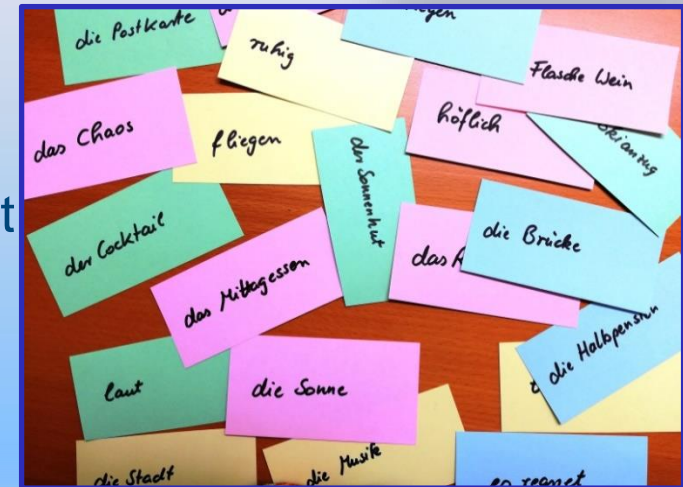 die Postkarte
ruhig
Flasche Wein
das Chaos
fliegen
höflich
Skianzug
der Sonnenhut
der Cocktail
das Mittagessen
die Brücke
das
die Halbpension
laut
die Sonne
die Stadt
die Musik
es regnet
t